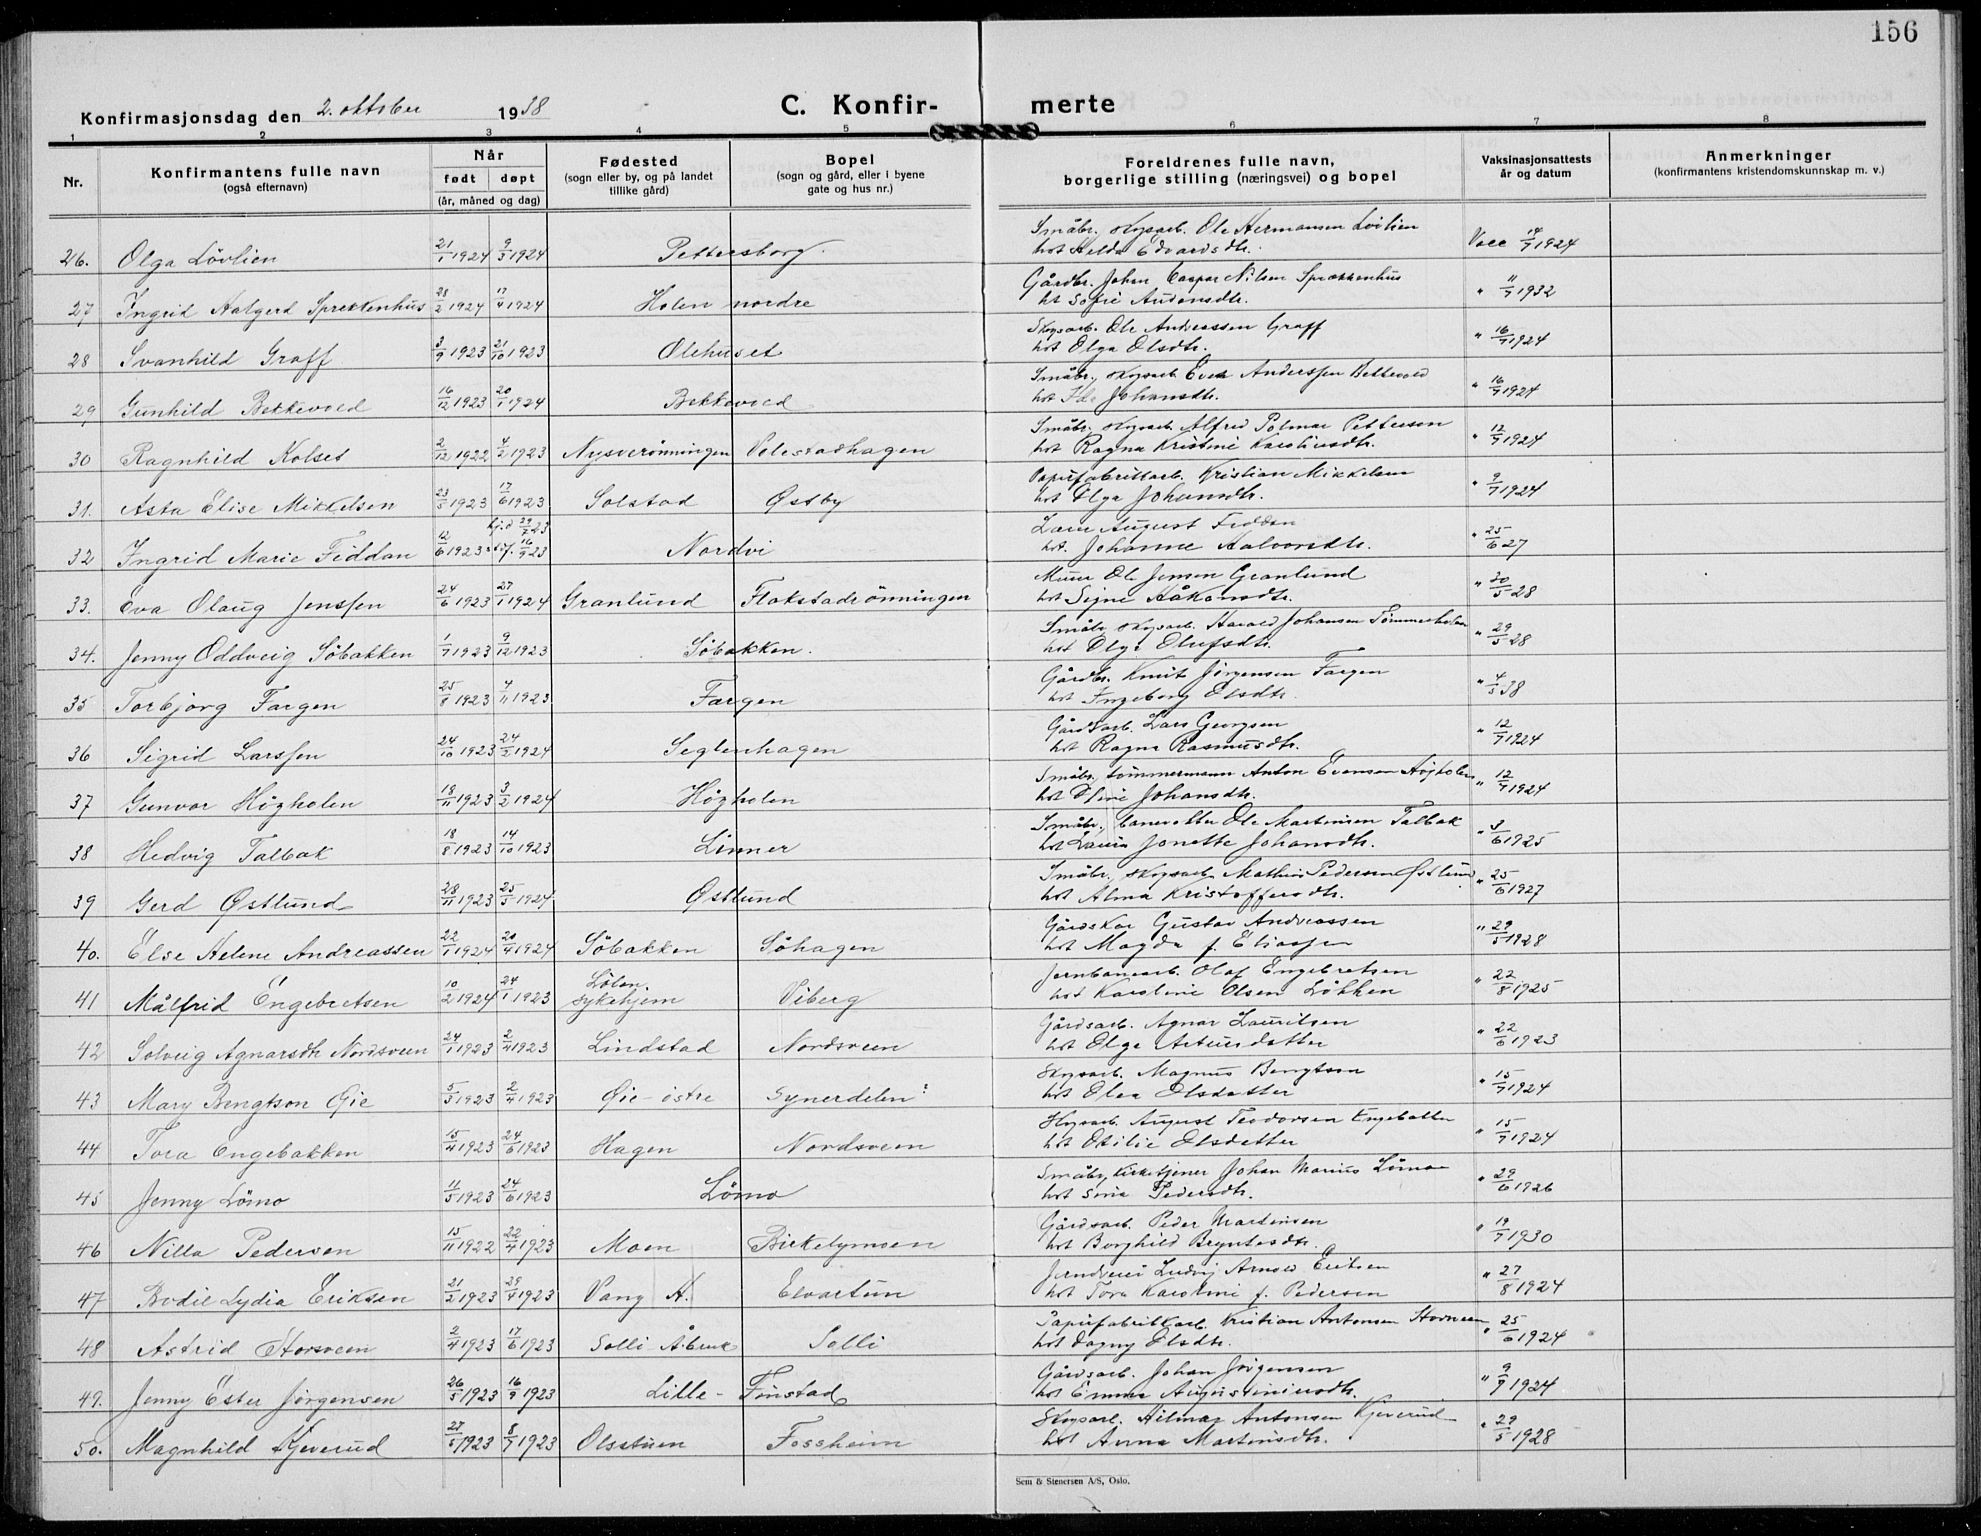 156
Konfirmasjonsdag den 2. oktober 1938 C. Konfir- merte
1 2 3 4 5 6 7 8
Nr. Konfirmantens fulle navn (også efternavn) Når født døpt (år, måned og dag) Fødested (sogn eller by, og på landet tillike gård) Bopel (sogn og gård, eller i byene gate og hus nr.) Foreldrenes fulle navn, borgerlige stilling (næringsvei) og bopel Vaksinasjonsattests år og datum Anmerkninger (konfirmantens kristendomskunnskap m. v.)
26. Olga Lövlien 21/1 1924 9/3 1924 Pettersborg. Småbr. skogsarb. Ole Hermansen Lövlien
hst Helda Edvardsdtr. Vacc 14/7 1924
27 Ingrid Halgerd Sprekkenhus 28/2 1924 17/4 1924 Holen nordre Gårdbr. Johan Caspar Nilsen Sprækkenhus
ht Sofie Audensdtr. " 11/7 1932
28 Svanhild Graff 3/9 1923 21/10 1923 Olehuset Skogsarb. Ole Andreassen Graff
hst Olga Olsdtr. " 16/7 1924
29 Gunhild Bekkevold 16/12 1923 20/1 1924 Bekkevold Småbr., skogsarb. Even Anderssen Bekkevold
hst Ida Johansdtr. " 16/7 1924
30 Ragnhild Kolset 2/12 1922 4/2 1923 Nysverönningen Volestadhagen Småbr., skogsarb. Alfred Polmar Pettersen
hst Ragna Kristine Karoliusdtr. " 12/7 1924
31. Asta Elise Mikkelsen 23/5 1923 17/6 1923 Solstad Østby Papirfabrikkarb. Kristian Mikkelsen
hst Olga Johansdtr. " 9/7 1924
32 Ingrid Marie Fiddan 12/6 1923 hj.d 29/7 23 stdf. 16/9 23 Nordvi Lærer August Fiddan
hst. Johanne Halvorsdtr. " 25/6 27
33. Eva Olaug Jenssen 24/6 1923 27/1 1924 Granlund Flakstadrönningen Murer Ole Jensen Granlund
hst Signe Håkonsdtr. " 30/5 28
34. Jenny Oddveig Söbakken 1/7 1923 9/12 1923 Söbakken. Småbr. skogsarb. Harald Johansen Tömmerholen
hst Olga Olufsdtr. " 29/5 28
35 Torbjörg Fargen 25/8 1923 4/11 1923 Fargen Gårdbr. Knut Jörgensen Fargen
hst Ingeborg Olsdtr. " 4/5 38
36 Sigrid Larssen 24/10 1923 24/5 1924 Seglenhagen Gårdsarb. Lars Georgsen
hst Ragna Rasmusdtr. " 12/7 1924
37 Gunvor Högholen 18/11 1923 3/2 1924 Högholen Småbr., tömmermann Anton Evensen Højholen
hst Oline Johansdtr. " 12/7 1924
38 Hedvig Talbak 18/8 1923 14/10 1923 Linner Småbr., banevokter Ole Martinsen Talbak
hst Laura Jonette Johansdtr. " 3/6 1925
39 Gerd Østlund 28/11 1923 25/5 1924 Østlund Småbr., skogsarb. Mathias Pedersen Østlund
hst Alma Kristoffersdtr. " 25/6 1927
40. Else Helene Andreassen 22/1 1924 20/4 1924 Söbakken Söhagen Gårdskar Gustav Andreassen
hst Magda f. Eliassen " 29/5 1928
41 Målfrid Engebretsen 10/2 1924 24/1 1923 Löten sykehjem Viberg Jernbanearb. Olaf Engebretsen
hst Karoline Olsen Løkken " 22/8 1925
42 Solveig Agnarsdtr Nordsveen 24/1 1923 2/4 1923 Lindstad Nordsveen Gårdsarb. Agnar Lauritsen
hst Olga Artursdatter " 22/6 1923
43 Mary Bengtson Øie 5/3 1923 2/4 1923 Øie - östre Synerdelen Skogsarb. Magnus Bengtson
hst Olea Olsdatter " 15/7 1924
44 Tora Engebakken 15/4 1923 24/6 1923 Hagen Nordsveen Skogsarb. August Teodorsen Engebakken
hst Otilie Olsdatter " 15/7 1924
45 Jenny Lömo 11/5 1923 24/6 1923 Lömo Småbr., kirketjener Johan Marius Lömo
hst Sina Pedersdtr. " 29/6 1926
46 Nilla Pedersen 15/11 1922 22/4 1923 Moen Birkelymoen Gårdsarb. Peder Martinsen
hst Borghild Bryntesdtr. " 19/7 1930
47 Bodil Lydia Eriksen 21/2 1923 29/4 1923 Vang H. Elvartun Ludvig Arnold Eriksen
hst Tora Karoline f. Pedersen " 27/8 1924
48 Astrid Storsveen 2/4 1923 17/6 1923 Solli Åbruk Solli Papirfabrikkarb. Kristian Antonsen Storsveen
hst Dagny Olsdtr. " 25/6 1924
49. Jenny Ester Jörgensen 26/5 1923 16/9 1923 Lille - Finstad Gårdsarb. Johan Jörgensen
hst Emma Augustiniusdtr. " 9/7 1924
50. Magnhild Kjeverud 27/5 1923 8/7 1923 Olsstuen Fossheim Skogsarb. Hilmar Antonsen Kjeverud
hst Anna Martinsdtr. " 29/5 1928
Sem & Stenersen A/S, Oslo.